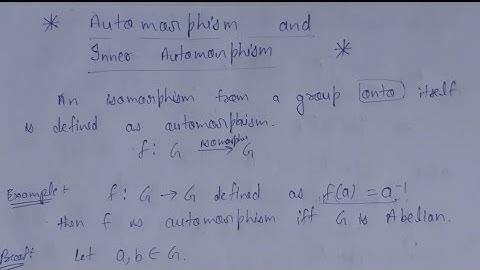 * Automorphism and
Inner Automorphism *
An isomorphism from a group onto itself
is defined as automorphism.
f: G isomorphic → G
Example:- f: G → G defined as f(a) = a⁻¹
then f is automorphism iff G is Abelian.
Proof: Let a, b ∈ G.